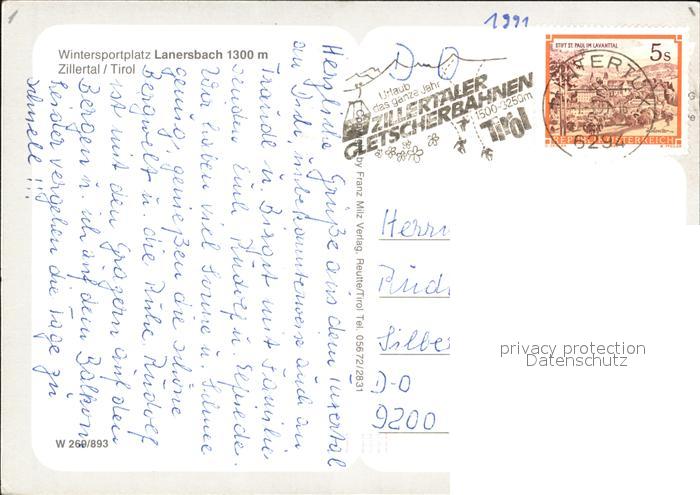 1991
Wintersportplatz Lanersbach 1300 m
Zillertal / Tirol
Herzliche Grüße aus dem Tuxertal
an Dich, unbekannterweise auch an
Traude u. Birgit mit Familie
senden Euch Rudolf u. Elfriede.
Wir haben viel Sonne u. Schnee
genug, genießen die schöne
Bergwelt u. die Ruhe. Rudolf
ist mit den Grazern auf den
Bergen u. ich auf dem Balkon
leider vergehen die Tage zu
schnell!!!
W 269/893
by Franz Milz Verlag, Reutte/Tirol Tel. 05672/2831
D-O
Urlaub
das ganze Jahr
ZILLERTALER
GLETSCHERBAHNEN
1500-3250m
Tirol
STIFT ST. PAUL IM LAVANTTAL
5s
REPUBLIK ÖSTERREICH
629
Herrn
Rüd
Silbe
D-O
9200
privacy protection
Datenschutz